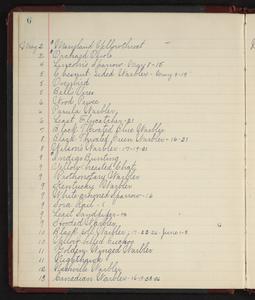 6
May 2 "Maryland Yellowthroat
2 "Orchard Oriole
4 Lincoln's Sparrow - May 8-15
5 Chesnut Sided Warbler - May 9-19
5 Ovenbird
5 Bell's Vireo
6 Wood Pewee
6 Parula Warbler
6 Least Flycatcher - 21
7 Black Throated Blue Warbler
8 Black Throated Green Warbler - 16-21
9 Wilson's Warbler - 17-21
9 Indigo Bunting
9 Yellow-breasted Chat
9 Prothonotary Warbler
9 Kentucky Warbler
9 White crowned Sparrow - 16
9 Sora Rail
9 Least Sandpiper
9 Hooded Warbler
10 Black poll Warbler
10 Yellow billed Cuckoo
10 Golden Winged Warbler
11 Nighthawk
12 Nashville Warbler
13 Canadian Warbler